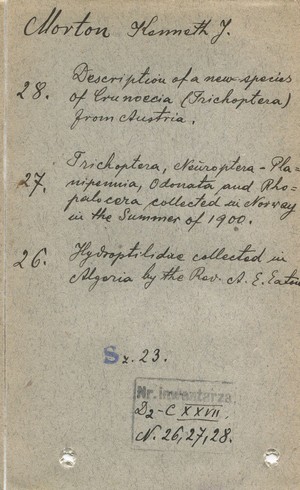 Morton Kenneth J.
28. Description of a new species
of Crunoecia (Trichoptera)
from Austria.
27. Trichoptera, Neuroptera-Pla=
nipennia, Odonata and Rho=
palocera collected in Norway
in the Summer of 1900.
26. Hydroptilidae collected in
Algeria by the Rev. A. E. Eaton
Sz. 23.
Nr. inwentarza
D2-C XXVII.
N. 26, 27, 28.